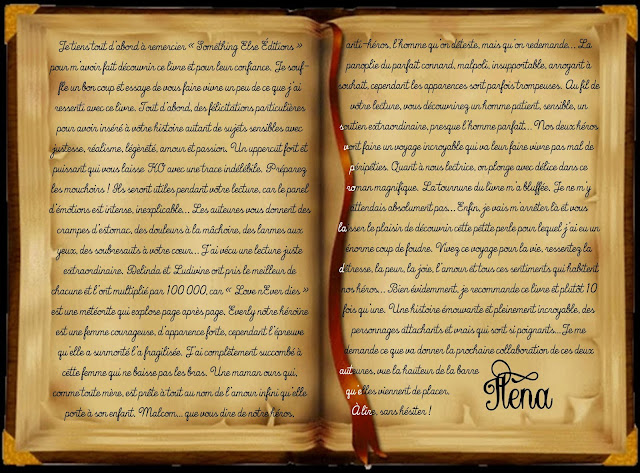 Je tiens tout d'abord à remercier « Something Else Editions »
pour m'avoir fait découvrir ce livre et pour leur confiance. Je souf-
fle un bon coup et essaye de vous faire vivre un peu de ce que j'ai
ressenti avec ce livre. Tout d'abord, des félicitations particulières
pour avoir inséré à vôtre histoire autant de sujets sensibles avec
justesse, réalisme, légèreté, amour et passion. Un uppercut fort et
puissant qui vous laisse KO avec une trace indélébile. Préparez
les mouchoirs ! Ils seront utiles pendant vôtre lecture, car le panel
d'émotions est intense, inexplicable... Les auteures vous donnent des
crampes d'estomac, des douleurs à la mâchoire, des larmes aux
yeux, des soubresauts à vôtre cœur... J'ai vécu une lecture juste
extraordinaire. Delinda et Ludivine ont pris le meilleur de
chacune et l'ont multiplié par 100 000, car « Love nEver dies »
est une météorite qui explose page après page. Everly nôtre héroïne
est une femme courageuse, d'apparence forte, cependant l'épreuve
qu'elle a surmonté l'a fragilisée. J'ai complètement succombé à
cette femme qui ne baisse pas les bras. Une maman ours qui,
comme toute mère, est prête à tout au nom de l'amour infini qu'elle
porte à son enfant. Malcom... que vous dire de nôtre héros,
anti-héros, l'homme qu'on déteste, mais qu'on redemande... La
panoplie du parfait connard, malpoli, insupportable, arrogant à
souhait, cependant les apparences sont parfois trompeuses. Au fil de
vôtre lecture, vous découvrirez un homme patient, sensible, un
soutien extraordinaire, presque l'homme parfait... Nos deux héros
vont faire un voyage incroyable qui va leur faire vivre pas mal de
péripéties. Quant à nous lectrice, on plonge avec délice dans ce
roman magnifique. La tournure du livre m'a bluffée. Je ne m'y
attendais absolument pas... Enfin, je vais m'arrêter là et vous
laisser le plaisir de découvrir cette petite perle pour lequel j'ai eu un
énorme coup de foudre. Vivez ce voyage pour la vie, ressentez la
détresse, la peur, la joie, l'amour et tous ces sentiments qui habitent
nos héros... Bien évidemment, je recommande ce livre et plutôt 10
fois qu'une. Une histoire émouvante et pleinement incroyable, des
personnages attachants et vrais qui sont si poignants... Je me
demande ce que va donner la prochaine collaboration de ces deux
auteures, vue la hauteur de la barre
qu'elles viennent de placer.
À lire, sans hésiter !
Héna